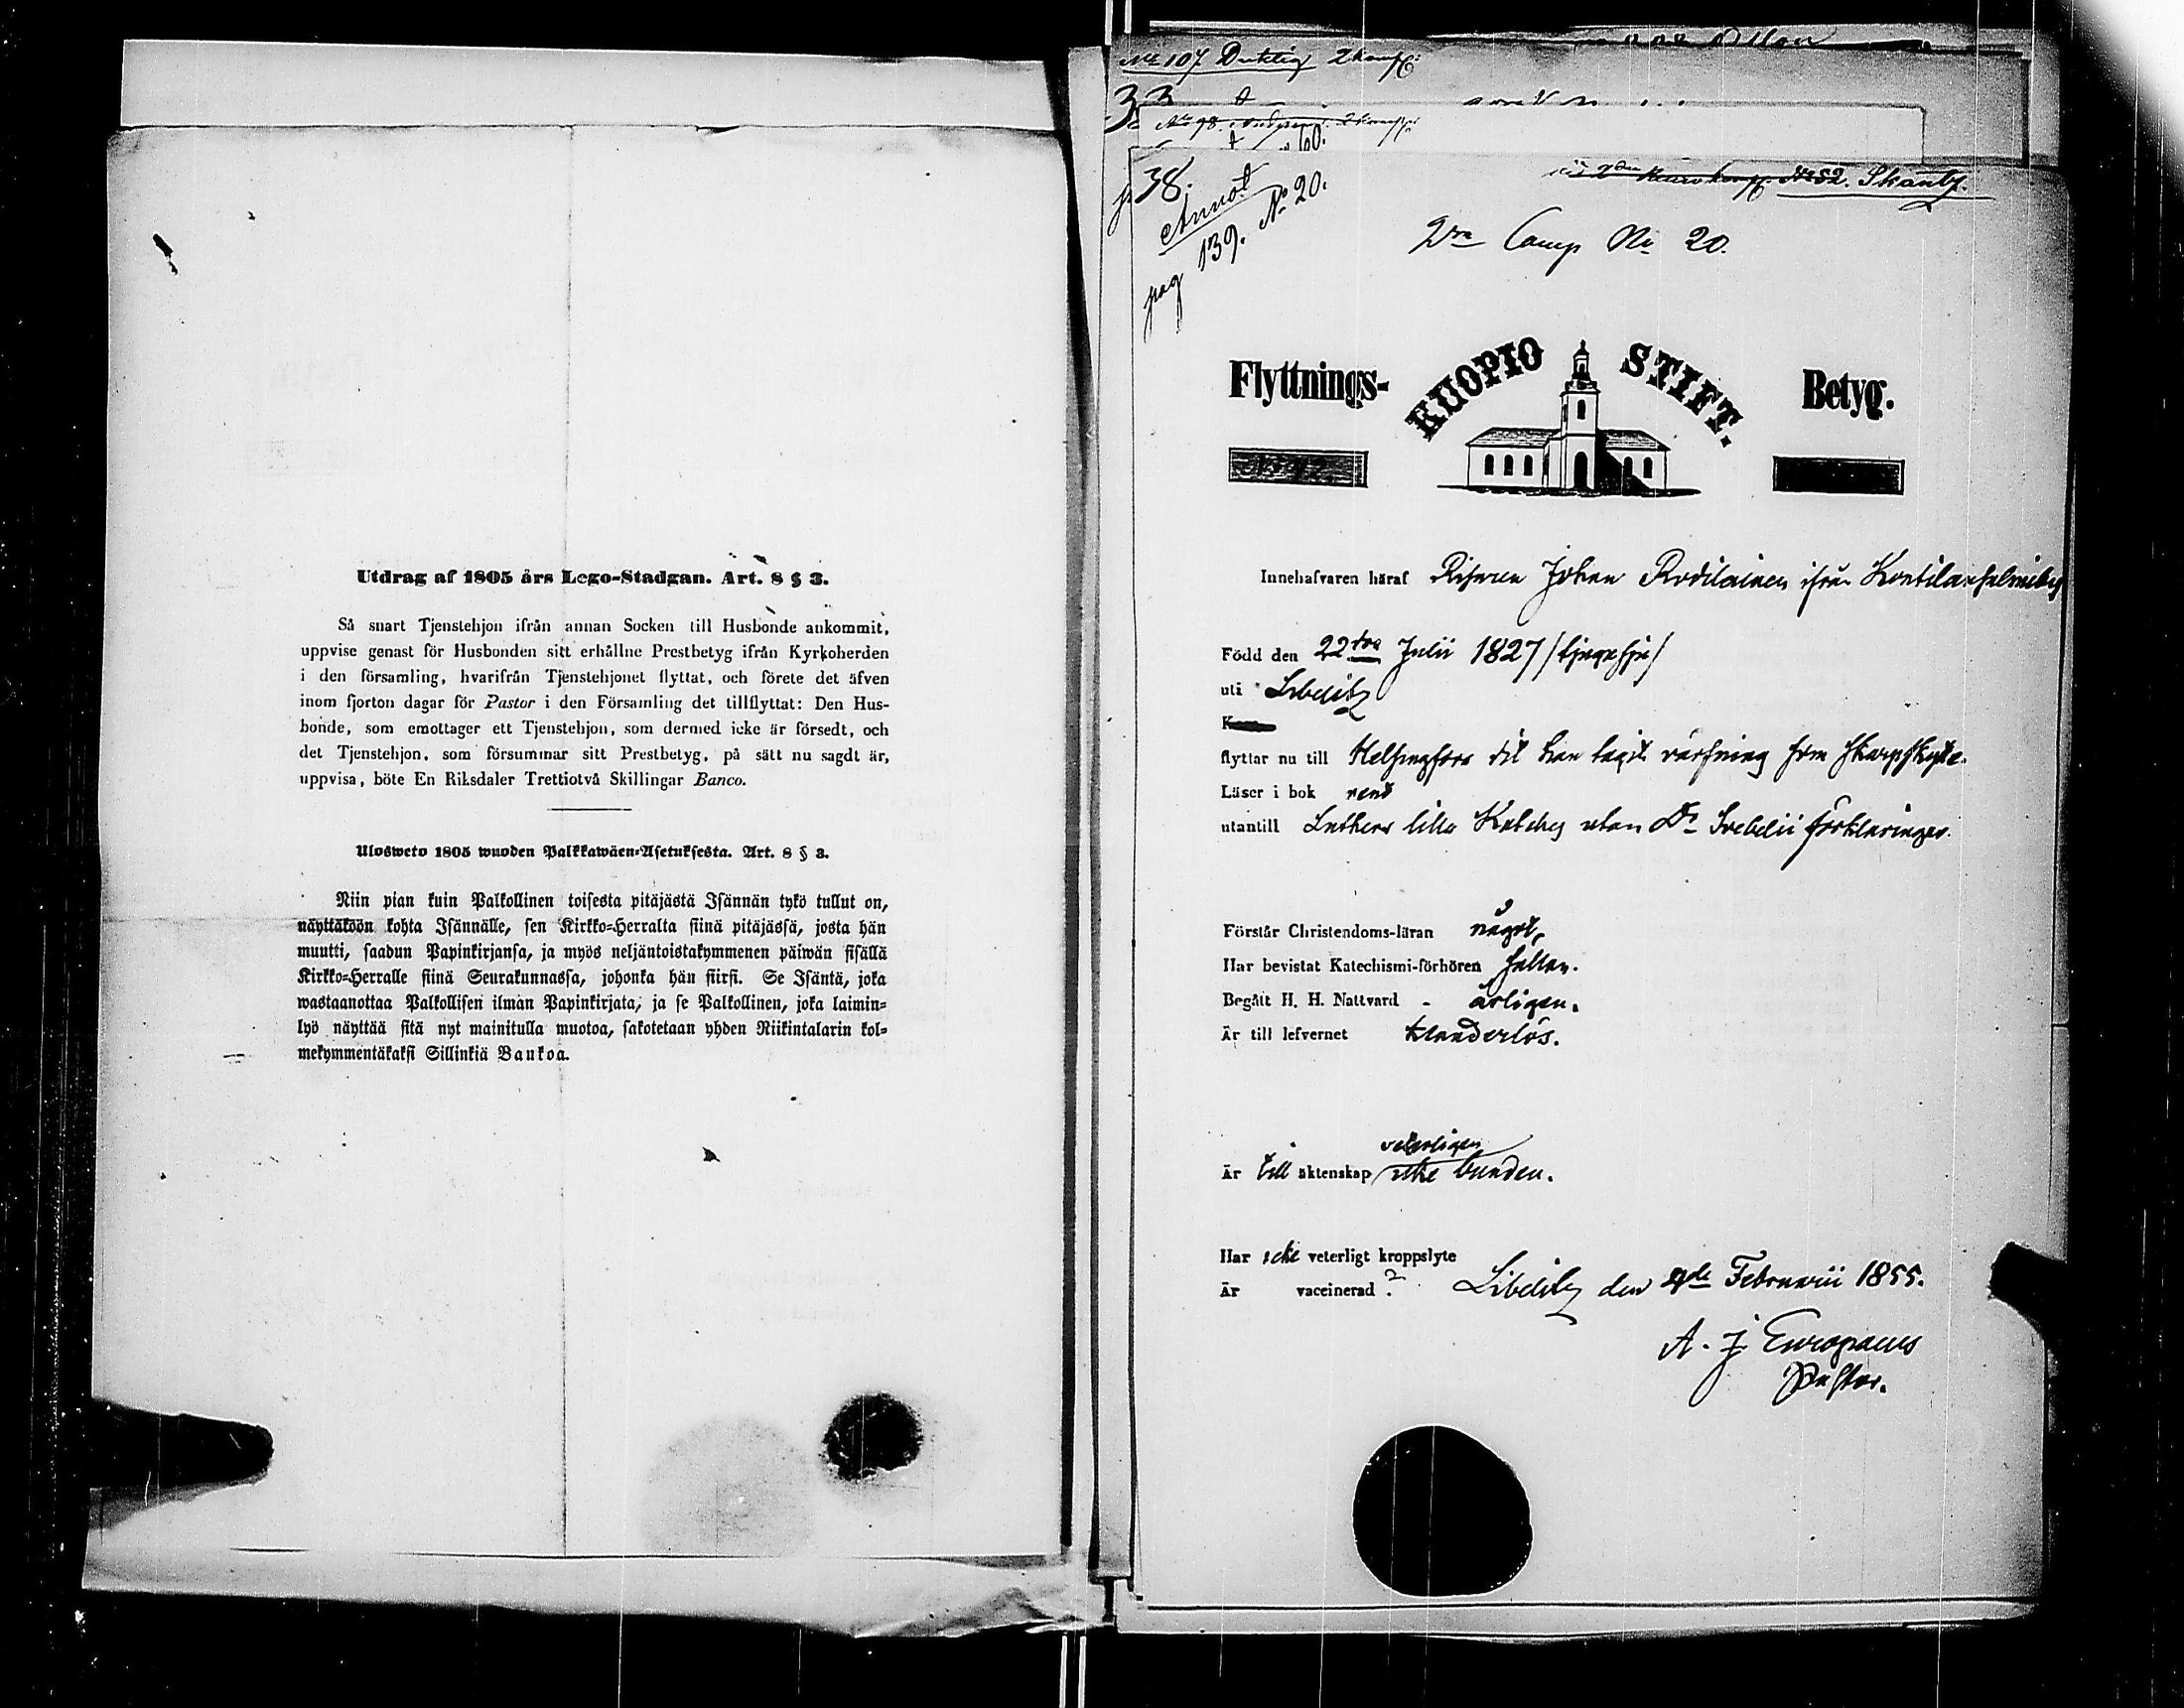 Utdrag af 1805 års Lego-Stadgan. Art. 8 § 3.
Så snart Tjenstehjon ifrån annan Socken till Husbonde ankommit,
uppvise genast för Husbonden sitt erhållne Prestbetyg ifrån Kyrkoherden
i den församling, hvarifrån Tjenstehjonet flyttat, och förete det äfven
inom fjorton dagar för Pastor i den Församling det tillflyttat: Den Hus-
bonde, som emottager ett Tjenstehjon, som dermed icke är försedt, och
det Tjenstehjon, som försummar sitt Prestbetyg, på sätt nu sagdt är,
uppvisa, böte En Riksdaler Trettiotvå Skillingar Banco.
Ulosweto 1805 wuoden Palkkawäen-Asetuksesta. Art. 8 § 3.
Niin pian kuin Palkollinen toisesta pitäjästä Isännän tykö tullut on,
näyttäköön kohta Isännälle, sen Kirkko-Herralta siinä pitäjässä, josta hän
muutti, saadun Papinkirjansa, ja myös neljäntoistakymmenen päiwän sisällä
Kirkko-Herralle siinä Seurakunnassa, johonka hän siirsi. Se Isäntä, joka
wastaanottaa Palkollisen ilman Papinkirjata, ja se Palkollinen, joka laimin-
lyö näyttää sitä nyt mainitulla muotoa, sakotetaan yhden Riikintalarin kol-
mekymmentäkaksi Sillinkiä Baukoa.
No 107 Duktig 2 komp
33
No 98.
38.
Annot
pag 139. No 20.
No 52. Skantz.
2dra Comp No 20.
Flyttnings- KUOPIO STIFT. Betyg.
No 42.
Innehafvaren häraf Johan Rodilainen ifrån
Född den 22dra Julii 1827
uti Libelitz
flyttar nu till Helsingfors dit han tagit värfning som skarpskytte.
Läser i bok rent
utantill Luthers lilla Katches utan Dr Svebelii förklaringar.
Förstår Christendoms-läran något,
Har bevistat Katechismi-förhören sällan.
Begått H. H. Nattvard - årligen.
Är till lefvernet klanderlös.
veterligen
Är till äktenskap icke bunden.
Har icke veterligt kroppslyte
Är vaccinerad ? Libelitz den 4de Februarii 1855.
A. J. Europaeus
Pastor.